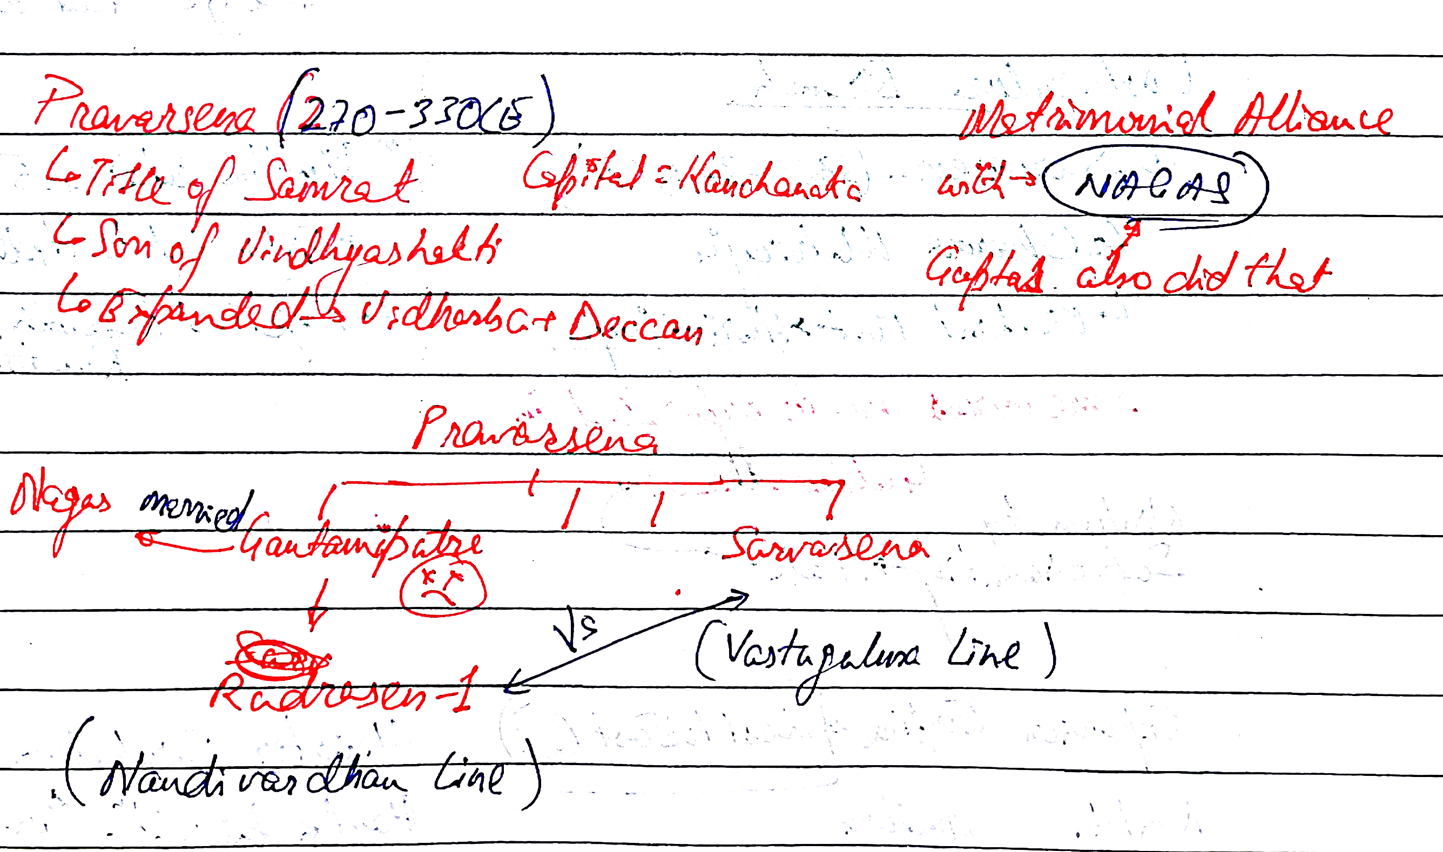 Pravarsena (270-330CE)
Matrimonial Alliance
↳ Title of Samrat
Capital = Kanchanaka
with → NAGAS
↳ Son of Vindhyashakti
Guptas also did that
↳ Expanded → Vidharba + Deccan
Pravarsena
Nagas married
Gautamiputra
Sarvasena
Vs
(Vastugulma Line)
Rudrasen-1
(Nandivardhan Line)